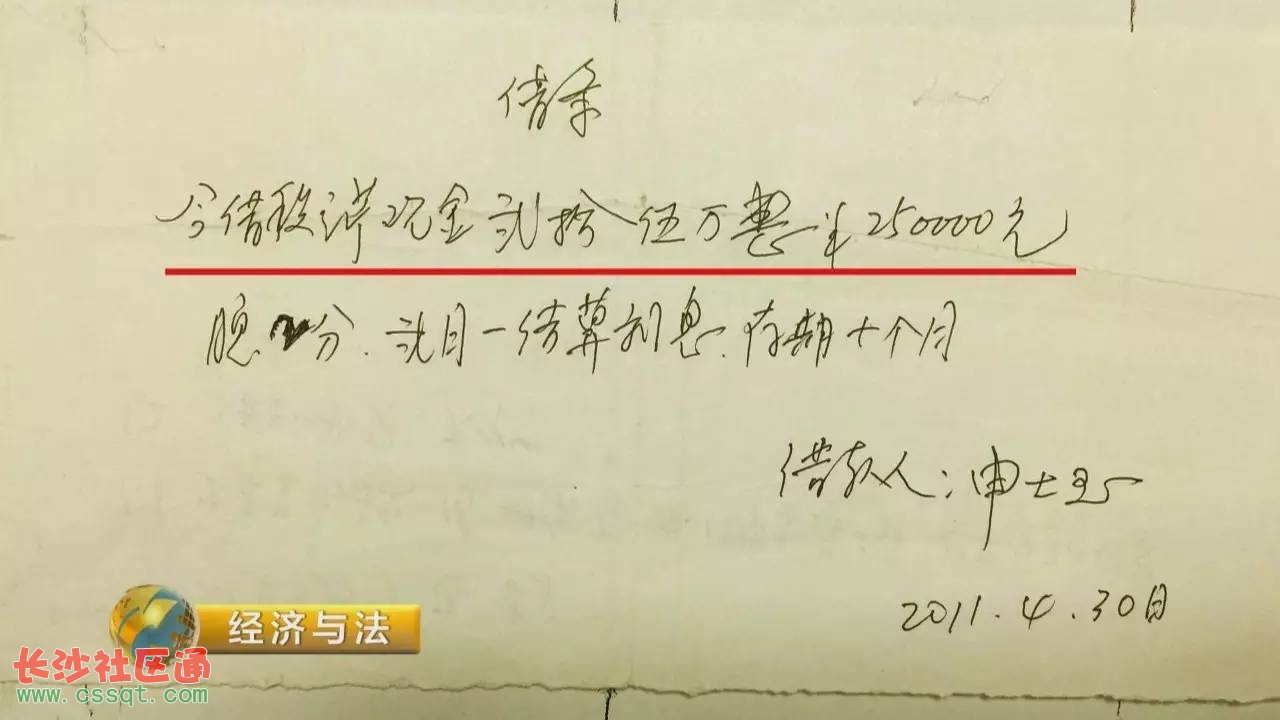 借条
今借段萍现金贰拾伍万整￥250000元
息2分.贰月一结算利息.存期十个月
借款人:申士玉
2011.4.30日
经济与法
长沙社区通
www.cssqt.com